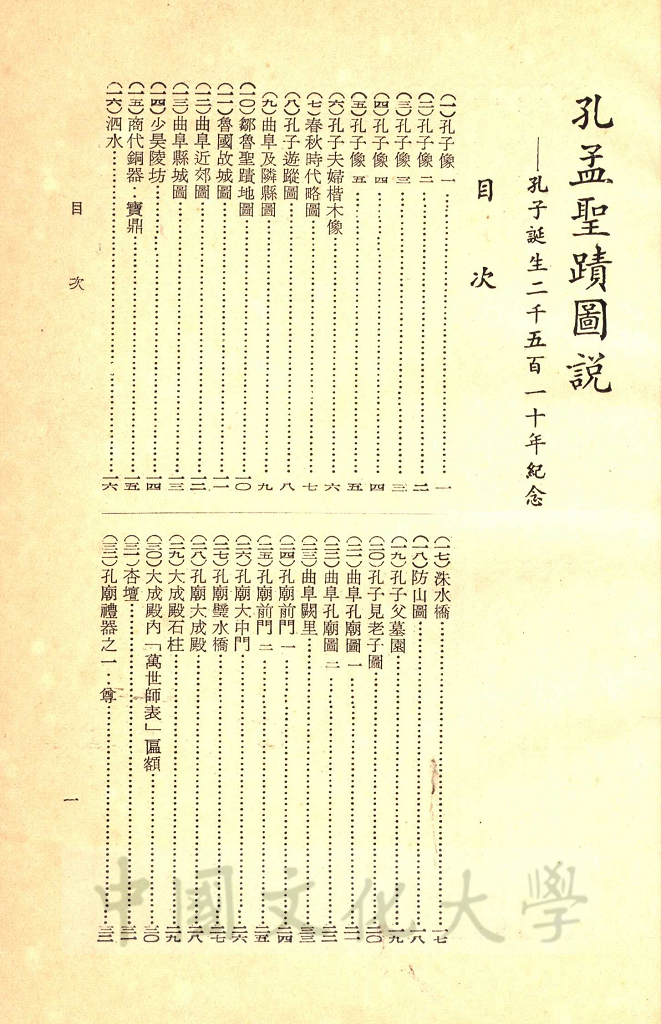 孔孟聖蹟圖說
——孔子誕生二千五百一十年紀念
目次
(一)孔子像 一……一
(二)孔子像 二……二
(三)孔子像 三……三
(四)孔子像 四……四
(五)孔子像 五……五
(六)孔子夫婦楷木像……六
(七)春秋時代略圖……七
(八)孔子遊蹤圖……八
(九)曲阜及隣縣圖……九
(一〇)鄒魯聖蹟地圖……一〇
(一一)魯國故城圖……一一
(一二)曲阜近郊圖……一二
(一三)曲阜縣城圖……一三
(一四)少昊陵坊……一四
(一五)商代銅器:寶鼎……一五
(一六)泗水……一六
(一七)洙水橋……一七
(一八)防山圖……一八
(一九)孔子父墓園……一九
(二〇)孔子見老子圖……二〇
(二一)曲阜孔廟圖 一……二一
(二二)曲阜孔廟圖 二……二二
(二三)曲阜闕里……二三
(二四)孔廟前門 一……二四
(二五)孔廟前門 二……二五
(二六)孔廟大中門……二六
(二七)孔廟璧水橋……二七
(二八)孔廟大成殿……二八
(二九)大成殿石柱……二九
(三〇)大成殿內「萬世師表」匾額……三〇
(三一)杏壇……三一
(三二)孔廟禮器之一:尊……三二
目次
一
中國文化大學